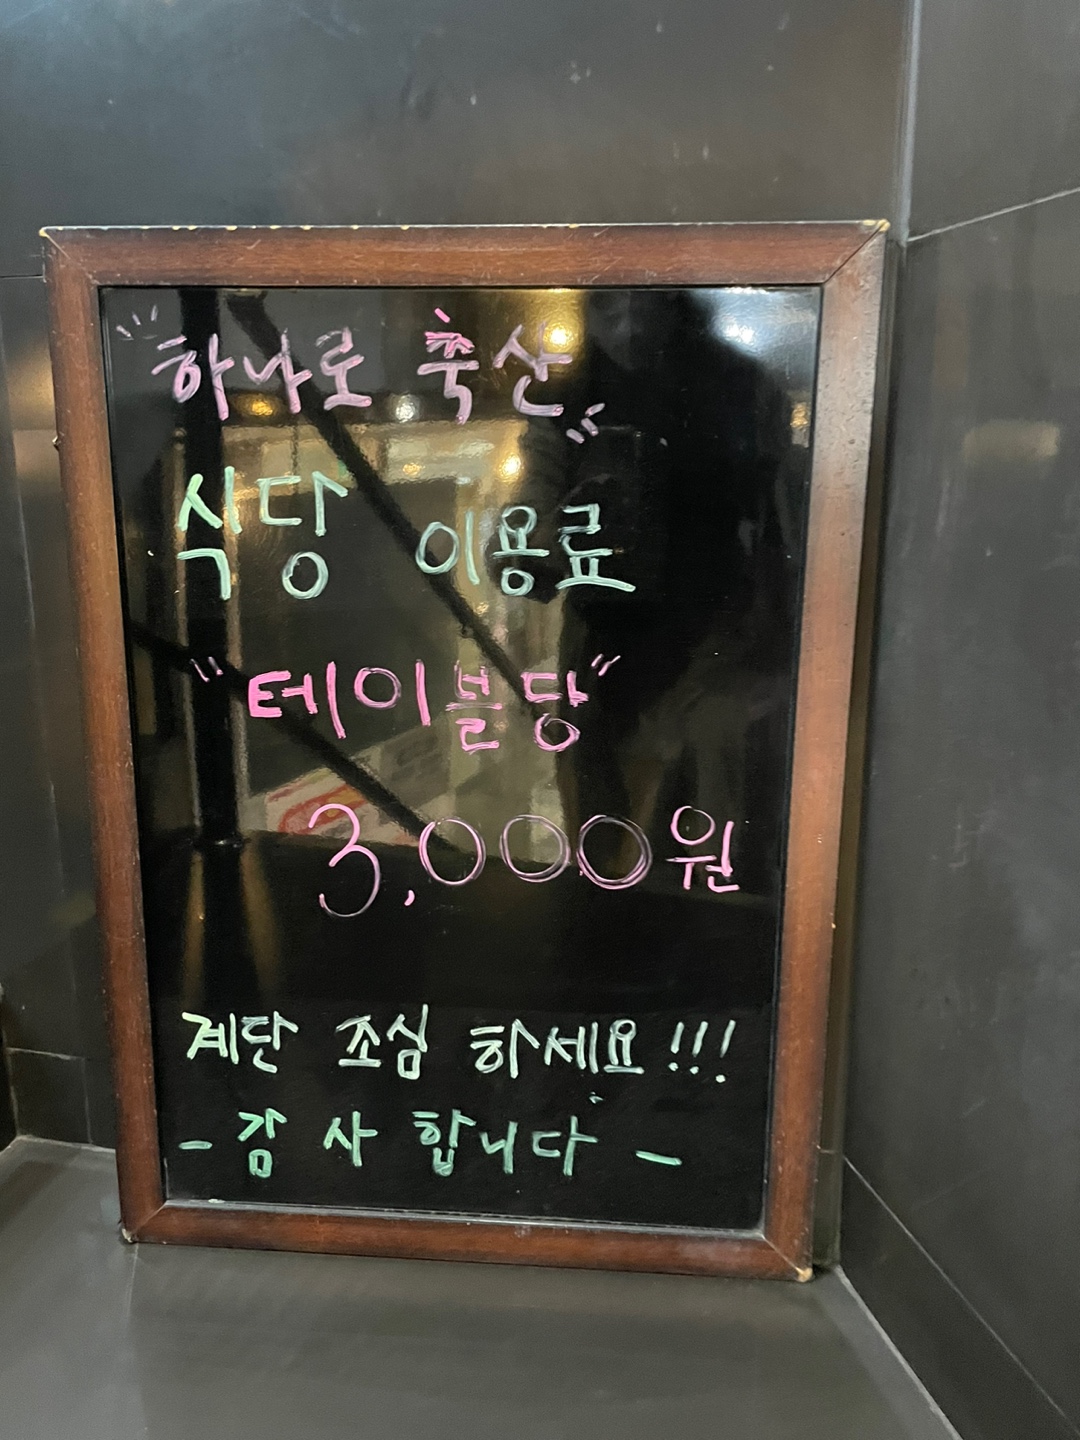 "하나로 축산"
식당 이용료
"테이블당"
3,000원
계단 조심 하세요!!!
- 감사합니다 -